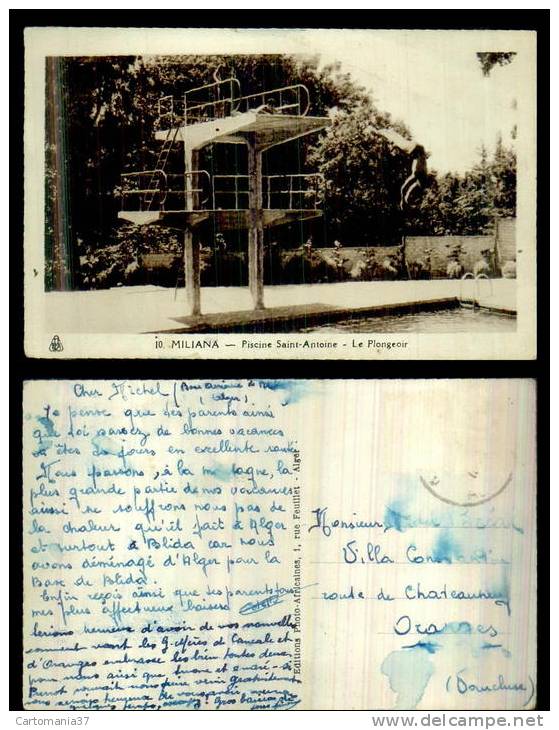 10. MILIANA — Piscine Saint-Antoine - Le Plongeoir
Cher Michel (Base Aérienne de
Je pense que tes parents ainsi
que toi passez de bonnes vacances
et êtes toujours en excellente santé
Nous passons, à la montagne, la
plus grande partie de nos vacances
aussi ne souffrons nous pas de
la chaleur qu'il fait à Alger
et surtout à Blida car nous
avons déménagé d'Alger pour la
Base de Blida.
Enfin reçois ainsi que tes parents tous
mes plus affectueux baisers
Serions heureux d'avoir de vos nouvelles
comment vont les G. Mères de Cancale et
d'Oranges embrasse les bien toutes deux
pour nous ainsi que
pouvait nous venir gratuitement
nous serions heureux de vous avoir
quelques temps, Gros baisers
Editions Photo-Africaines, 1, rue Feuillet - Alger
Monsieur
Villa
route de Chateauneuf
Oranges
(Vaucluse)
Cartomania37